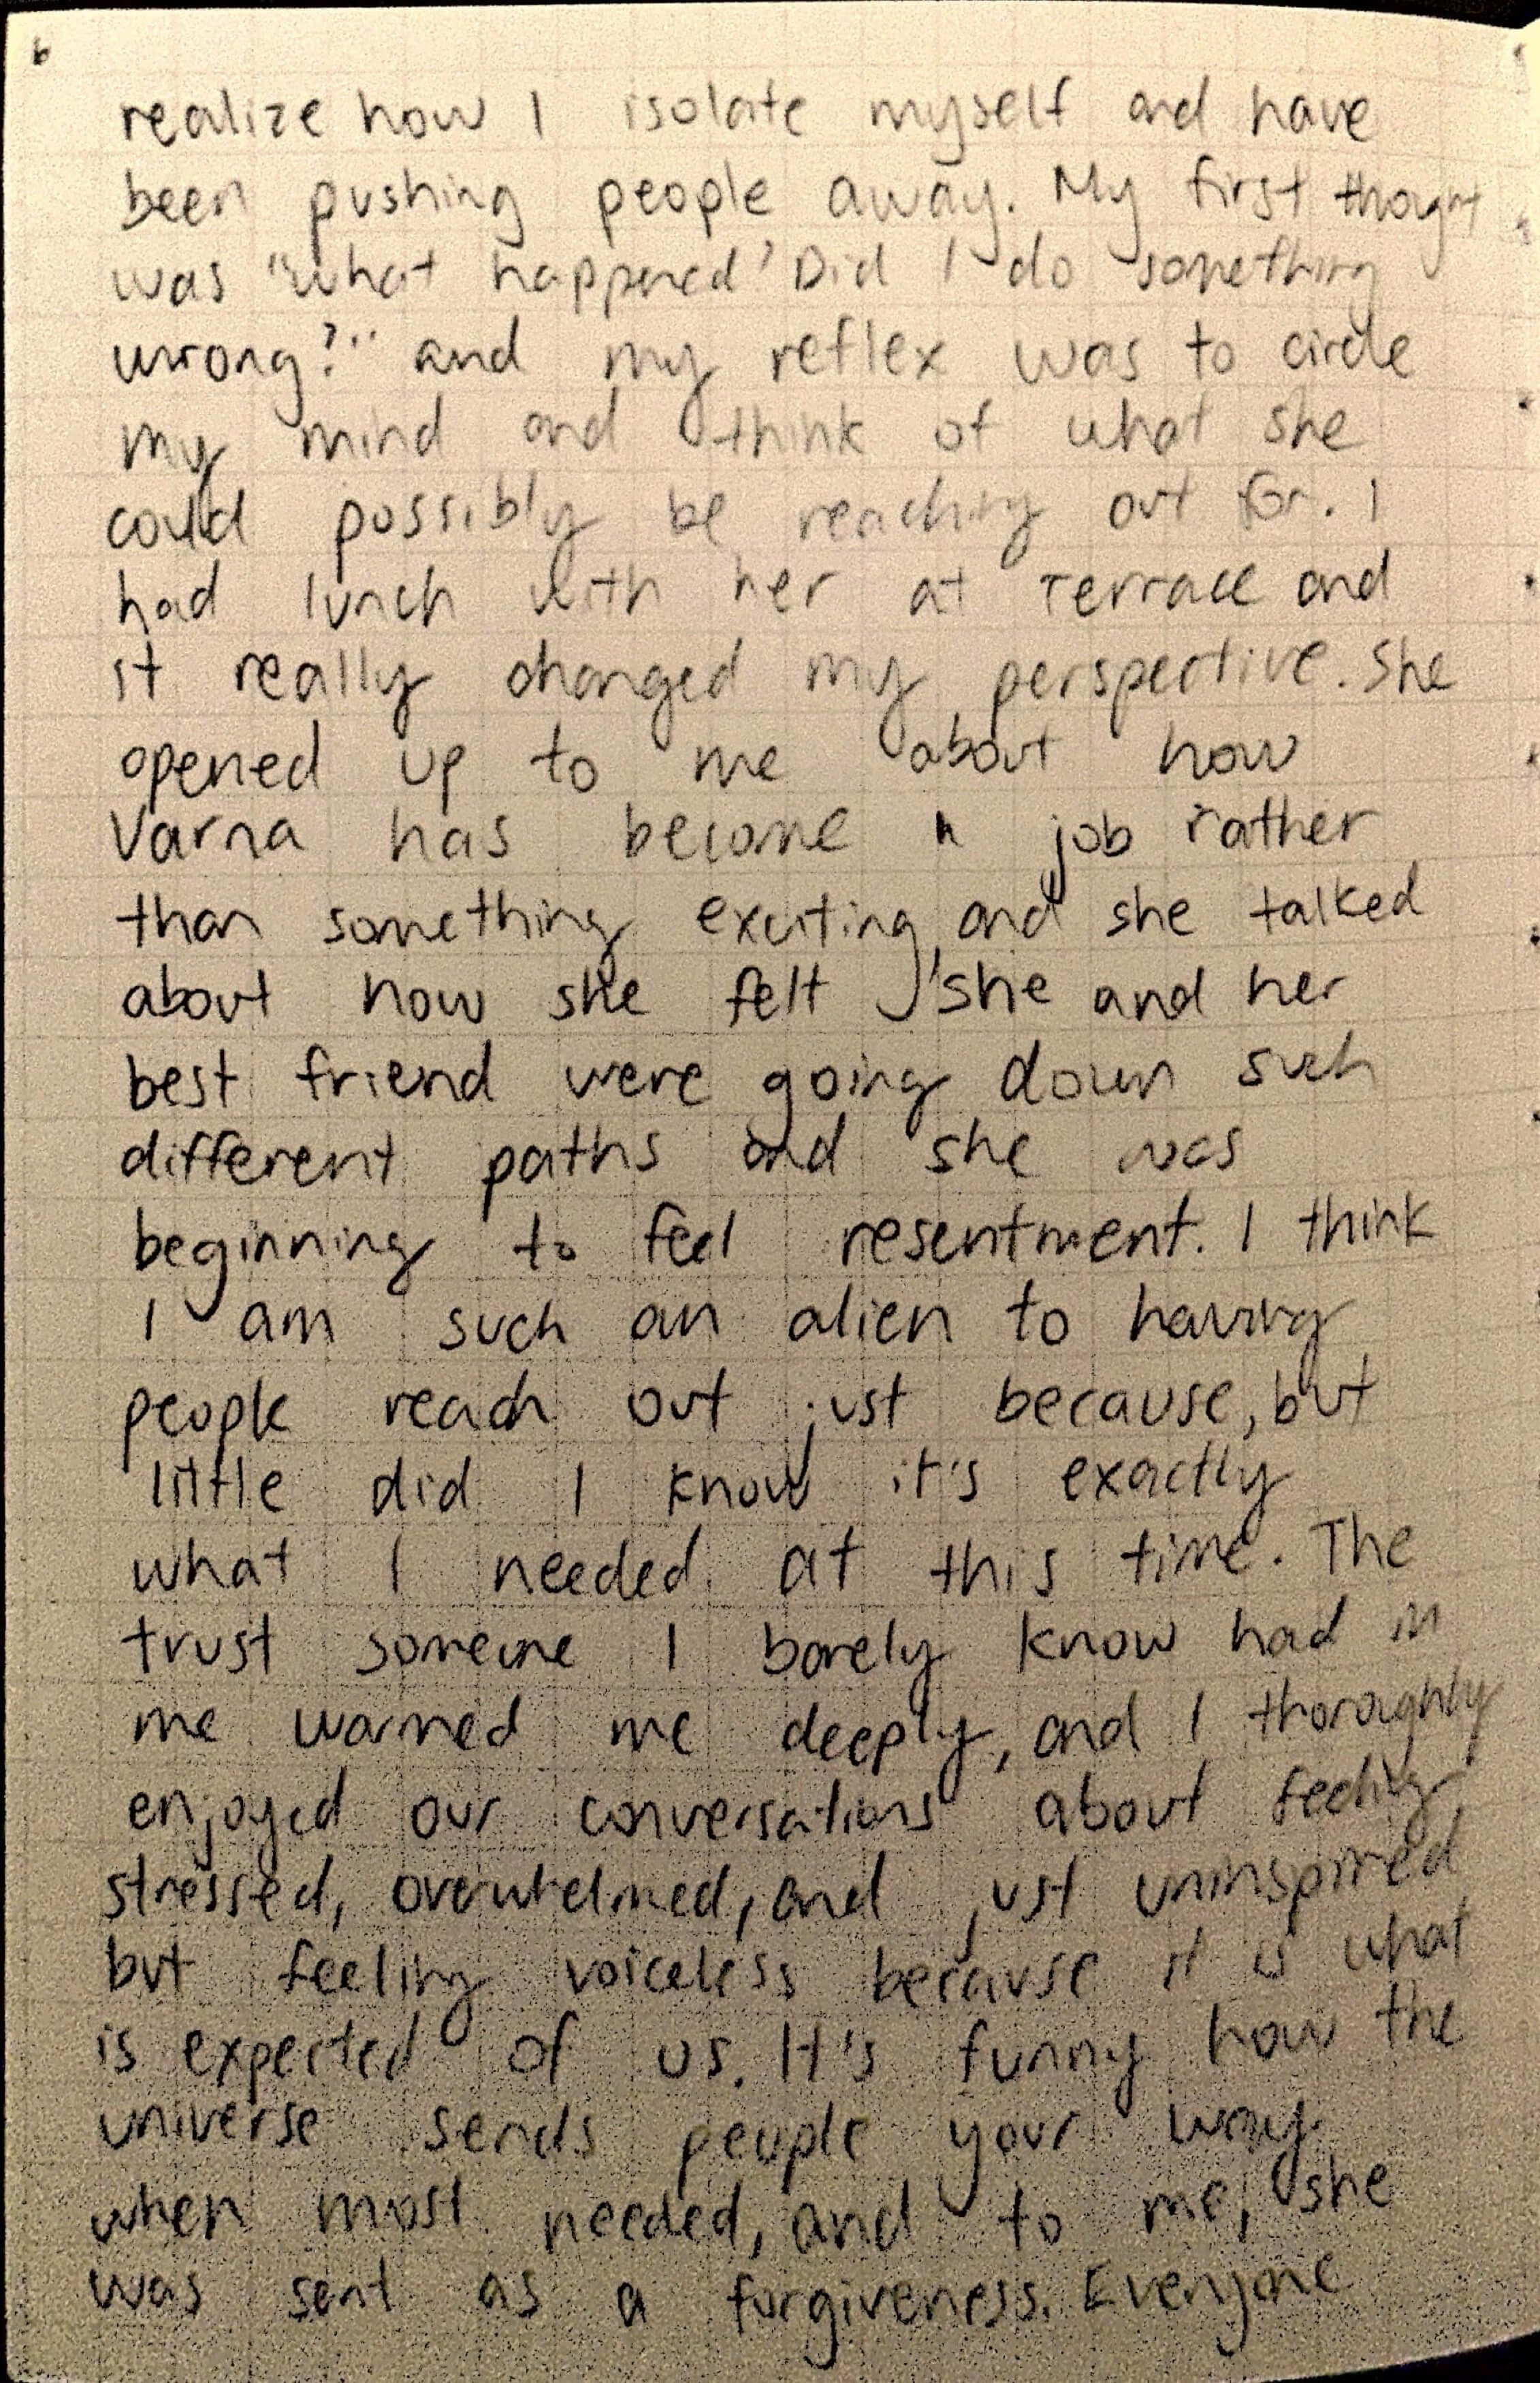 6
realize how I isolate myself and have
been pushing people away. My first thought
was "what happened? Did I do something
wrong?" and my reflex was to circle
my mind and think of what she
could possibly be reaching out for. I
had lunch with her at Terrace and
it really changed my perspective. She
opened up to me about how
Varna has become a job rather
than something exciting, and she talked
about how she felt she and her
best friend were going down such
different paths and she was
beginning to feel resentment. I think
I am such an alien to having
people reach out just because, but
little did I know it's exactly
what I needed at this time. The
trust someone I barely know had in
me warmed me deeply, and I thoroghly
enjoyed our conversations about feeling
stressed, overwhelmed, and just uninspired
but feeling voiceless because it is what
is expected of us. It's funny how the
universe sends people your way
when most needed, and to me, she
was sent as a forgiveness. Everyone